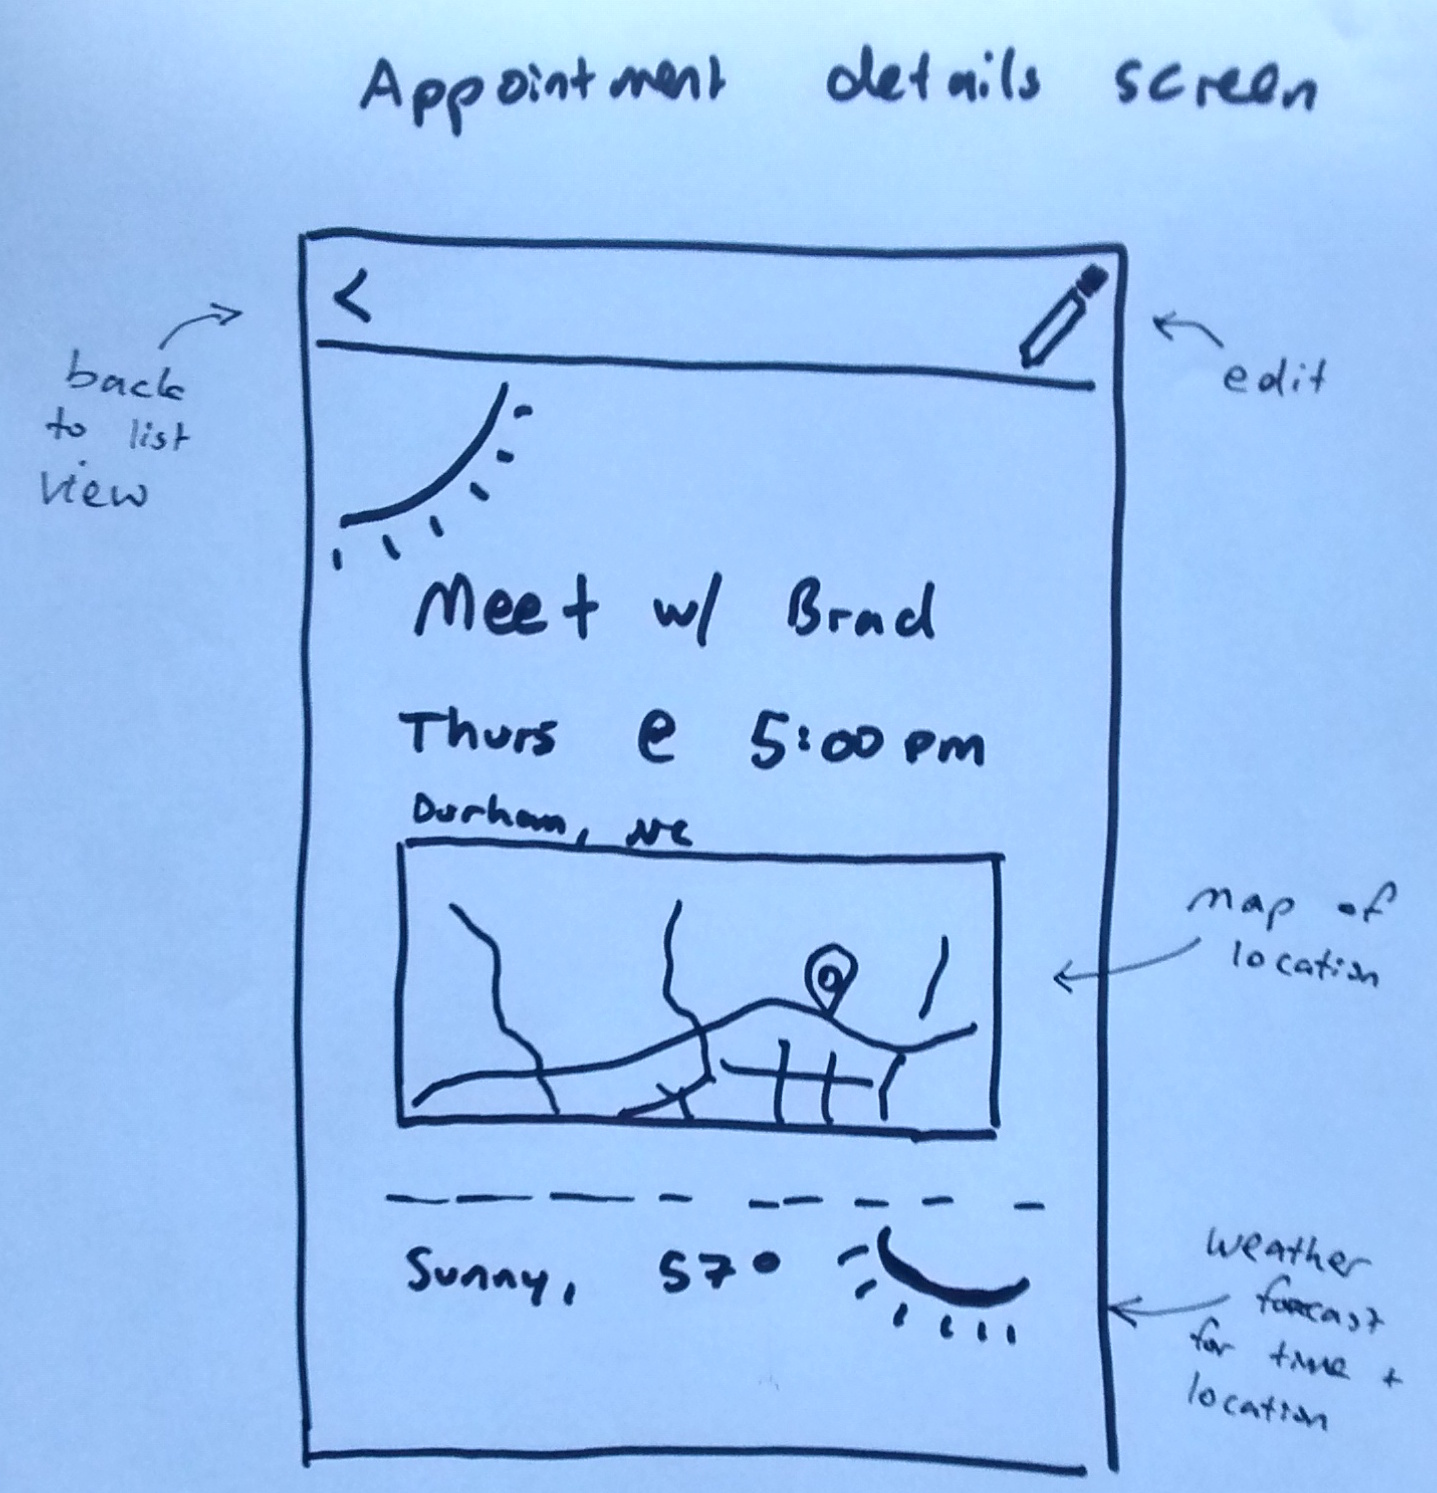 Appointment details screen
<
back
to list
view
edit
Meet w/ Brad
Thurs @ 5:00 pm
Durham, NC
map of
location
Sunny, 57°
weather
forecast
for time +
location